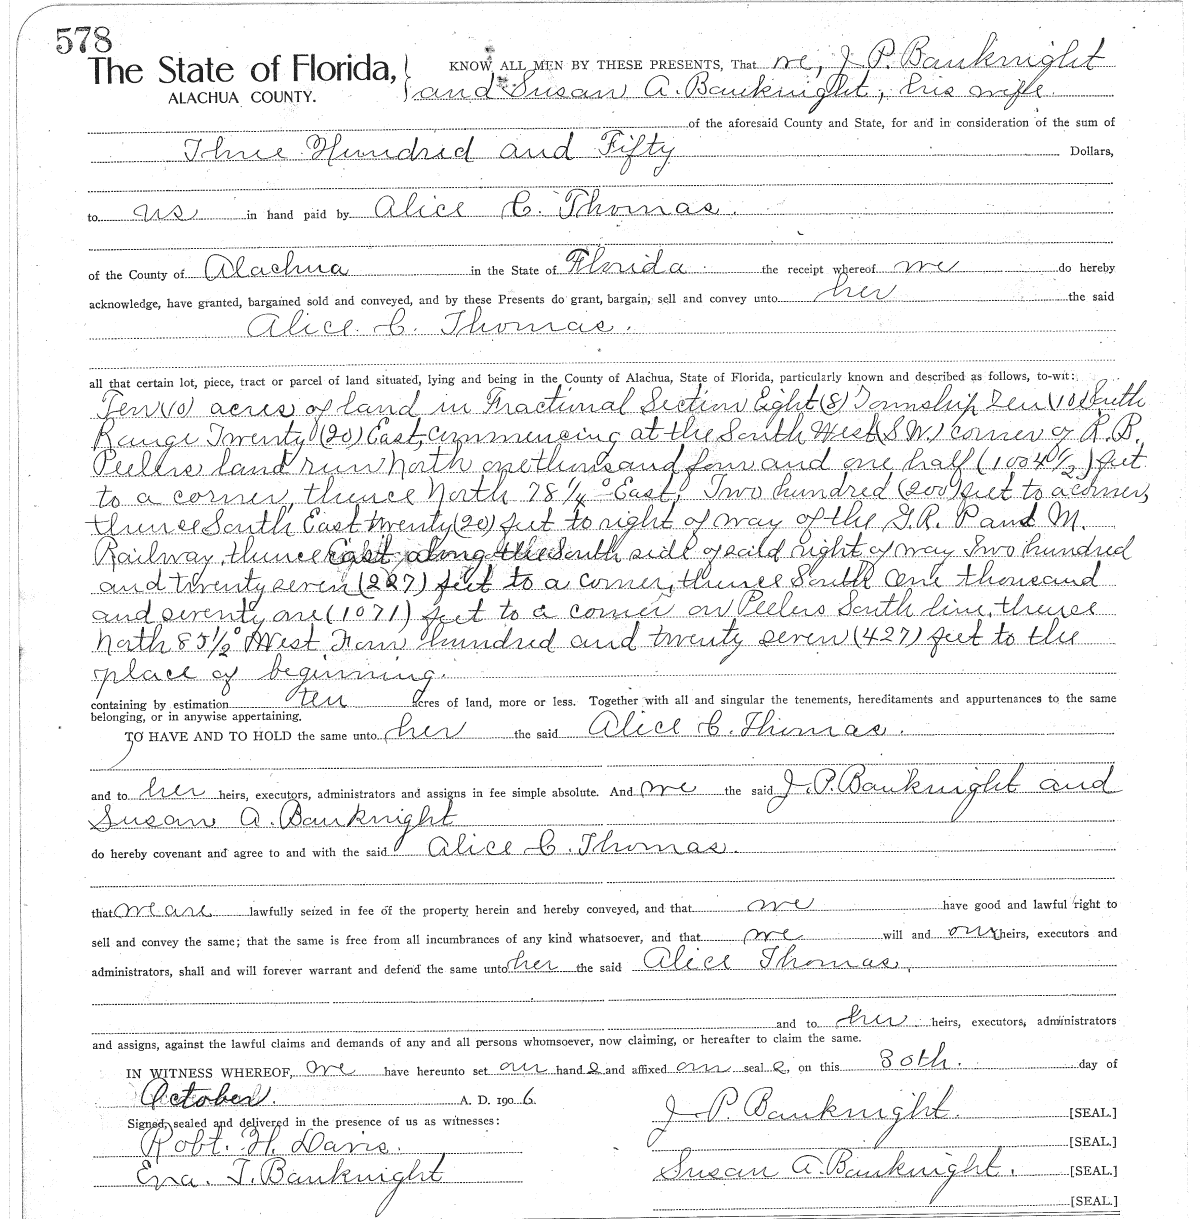 578
The State of Florida,
ALACHUA COUNTY.
KNOW ALL MEN BY THESE PRESENTS, That we, J. P. Bauknight
and Susan A. Bauknight, his wife
of the aforesaid County and State, for and in consideration of the sum of
Three Hundred and Fifty Dollars,
to us in hand paid by Alice C. Thomas.
of the County of Alachua in the State of Florida the receipt whereof we do hereby
acknowledge, have granted, bargained sold and conveyed, and by these Presents do grant, bargain, sell and convey unto her the said
Alice C. Thomas.
all that certain lot, piece, tract or parcel of land situated, lying and being in the County of Alachua, State of Florida, particularly known and described as follows, to-wit:
Ten (10) acres of land in Fractional Section Eight (8) Township Ten (10) South
Range Twenty (20) East, commencing at the South West (S.W.) corner of R. B.
Peelers land run North one thousand four and one half (1004 1/2) feet
to a corner, thence North 78 1/4° East, Two hundred (200) feet to a corner,
thence South East twenty (20) feet to right of way of the G. R. P. and M.
Railway, thence East along the South side of said right of way Two hundred
and twenty seven (227) feet to a corner, thence South One thousand
and seventy one (1071) feet to a corner on Peelers South line, thence
North 85 1/2° West Four hundred and twenty seven (427) feet to the
place of beginning.
containing by estimation ten acres of land, more or less. Together with all and singular the tenements, hereditaments and appurtenances to the same
belonging, or in anywise appertaining.
TO HAVE AND TO HOLD the same unto her the said Alice C. Thomas.
and to her heirs, executors, administrators and assigns in fee simple absolute. And we the said J. P. Bauknight and
Susan A. Bauknight
do hereby covenant and agree to and with the said Alice C. Thomas.
that we are lawfully seized in fee of the property herein and hereby conveyed, and that we have good and lawful right to
sell and convey the same; that the same is free from all incumbrances of any kind whatsoever, and that we will and our heirs, executors and
administrators, shall and will forever warrant and defend the same unto her the said Alice Thomas,
and to her heirs, executors, administrators
and assigns, against the lawful claims and demands of any and all persons whomsoever, now claiming, or hereafter to claim the same.
IN WITNESS WHEREOF, we have hereunto set our hand s and affixed our seal s, on this 30th. day of
October. A. D. 190 6.
Signed, sealed and delivered in the presence of us as witnesses:
J. P. Bauknight. [SEAL.]
Robt. H. Davis. [SEAL.]
Ena. T. Bauknight Susan A. Bauknight. [SEAL.]
[SEAL.]